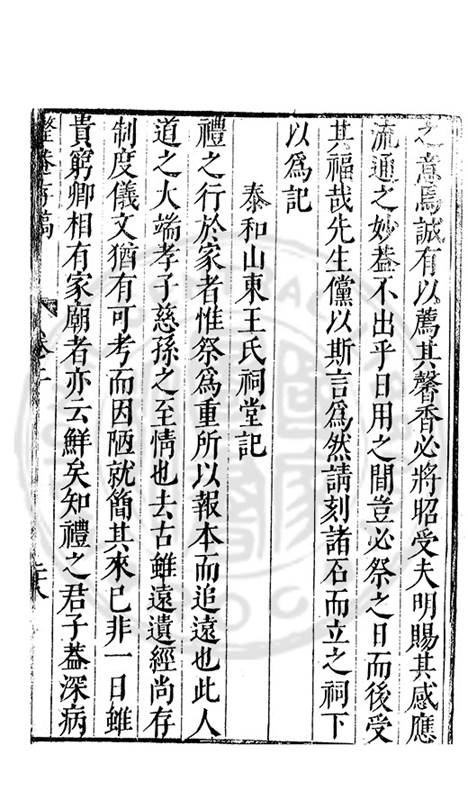 之意焉誠有以薦其馨香必將昭受夫明賜其感應
流通之妙葢不出乎日用之間豈必祭之日而後受
其福哉先生儻以斯言爲然請刻諸石而立之祠下
以爲記
泰和山東王氏祠堂記
禮之行於家者惟祭爲重所以報本而追遠也此人
道之大端孝子慈孫之至情也去古雖遠遺經尚存
制度儀文猶有可考而因陋就簡其來已非一日雖
貴窮卿相有家廟者亦云鮮矣知禮之君子葢深病
整菴存稿 卷二